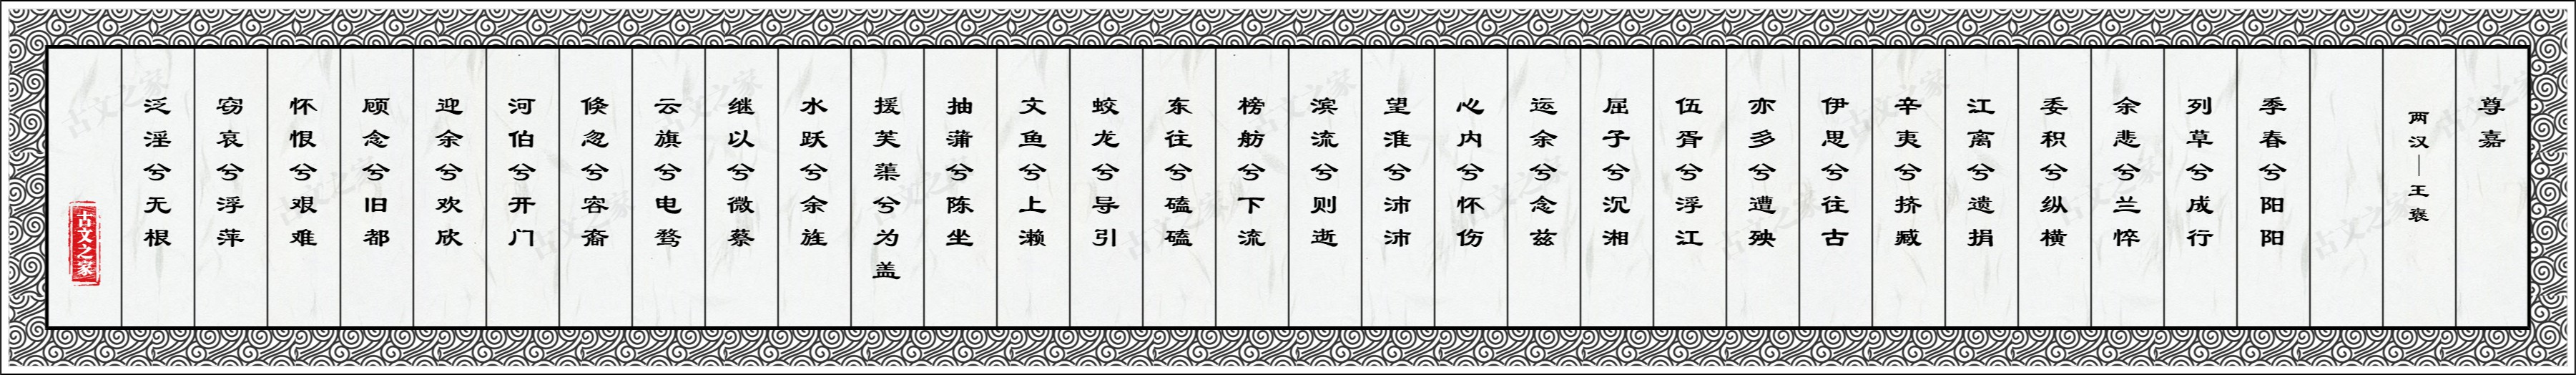 尊嘉
两汉—王褒
季春兮阳阳
列草兮成行
余悲兮兰悴
委积兮纵横
江离兮遗捐
辛夷兮挤臧
伊思兮往古
亦多兮遭殃
伍胥兮浮江
屈子兮沉湘
运余兮念兹
心内兮怀伤
望淮兮沛沛
滨流兮则逝
榜舫兮下流
东往兮磕磕
蛟龙兮导引
文鱼兮上濑
抽蒲兮陈坐
援芙蕖兮为盖
水跃兮余旌
继以兮微蔡
云旗兮电骛
倏忽兮容裔
河伯兮开门
迎余兮欢欣
顾念兮旧都
怀恨兮艰难
窃哀兮浮萍
泛淫兮无根
古文之家